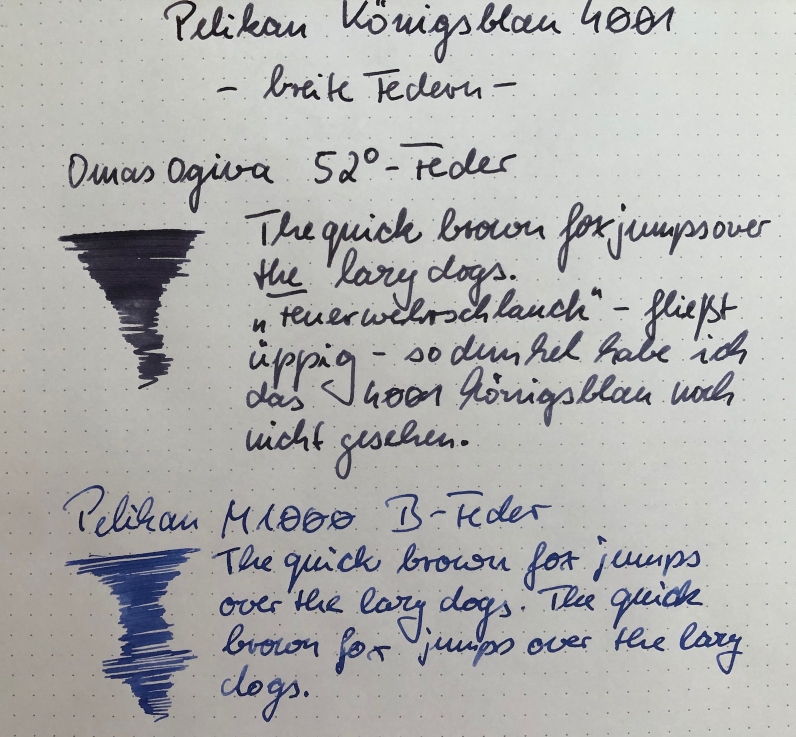 Pelikan Königsblau 4001
- breite Federn -
Omas Ogiva 52°-Feder
The quick brown fox jumps over
the lazy dogs.
„Feuerwehrschlauch“ - fließt
üppig - so dunkel habe ich
das 4001 Königsblau noch
nicht gesehen.
Pelikan M1000 B-Feder
The quick brown fox jumps
over the lazy dogs. The quick
brown fox jumps over the lazy
dogs.